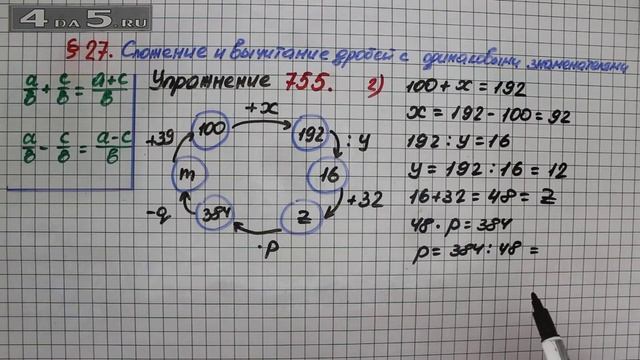 4 DA 5.RU
§ 27. Сложение и вычитание дробей с одинаковыми знаменателями
a/b + c/b = a+c/b
a/b - c/b = a-c/b
Упражнение 755. г)
+x
100
192
: y
16
+32
z
· p
384
-q
m
+39
100 + x = 192
x = 192 - 100 = 92
192 : y = 16
y = 192 : 16 = 12
16 + 32 = 48 = z
48 · p = 384
p = 384 : 48 =